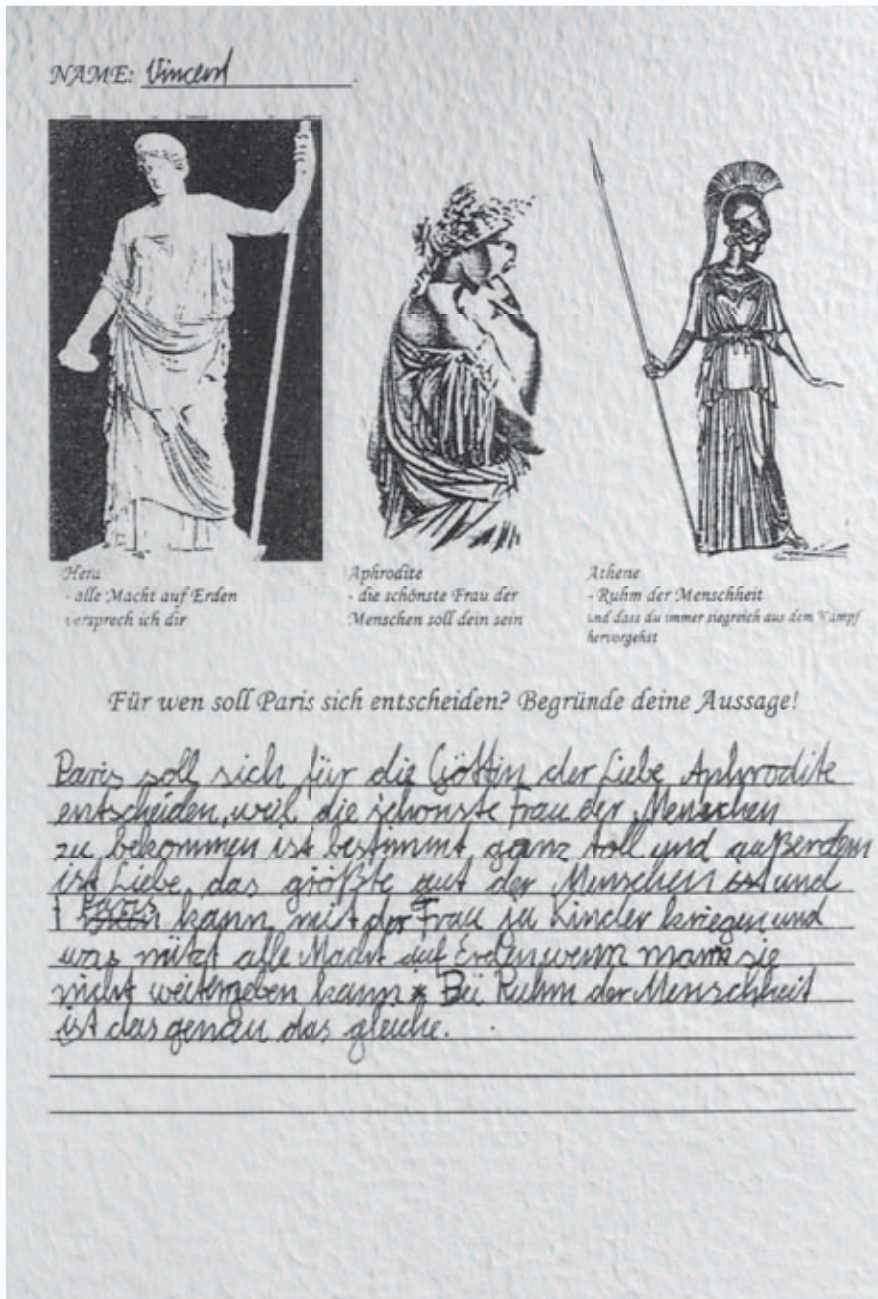 NAME: Vincent
Hera
- alle Macht auf Erden
versprech ich dir
Aphrodite
- die schönste Frau der
Menschen soll dein sein
Athene
- Ruhm der Menschheit
und dass du immer siegreich aus dem Kampf
hervorgehst
Für wen soll Paris sich entscheiden? Begründe deine Aussage!
Paris soll sich für die Göttin der Liebe Aphrodite
entscheiden, weil die schönste Frau der Menschen
zu bekommen ist bestimmt ganz toll und außerdem
ist Liebe das größte gut der Menschen und
Paris kann mit der Frau ja Kinder kriegen und
was nützt alle Macht auf Erden wenn mann sie
nicht weitergeben kann Bei Ruhm der Menschheit
ist das genau das gleiche.